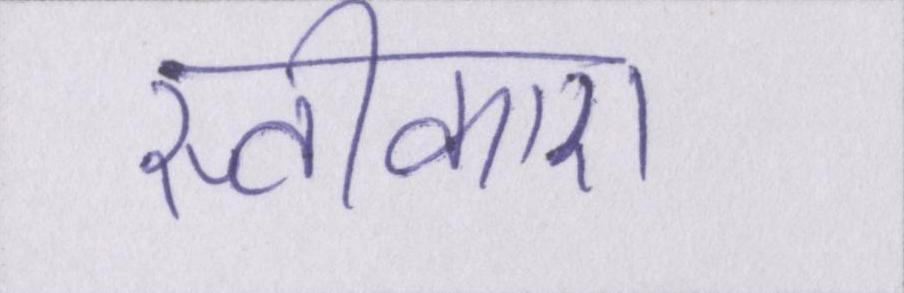 स्वीकारा